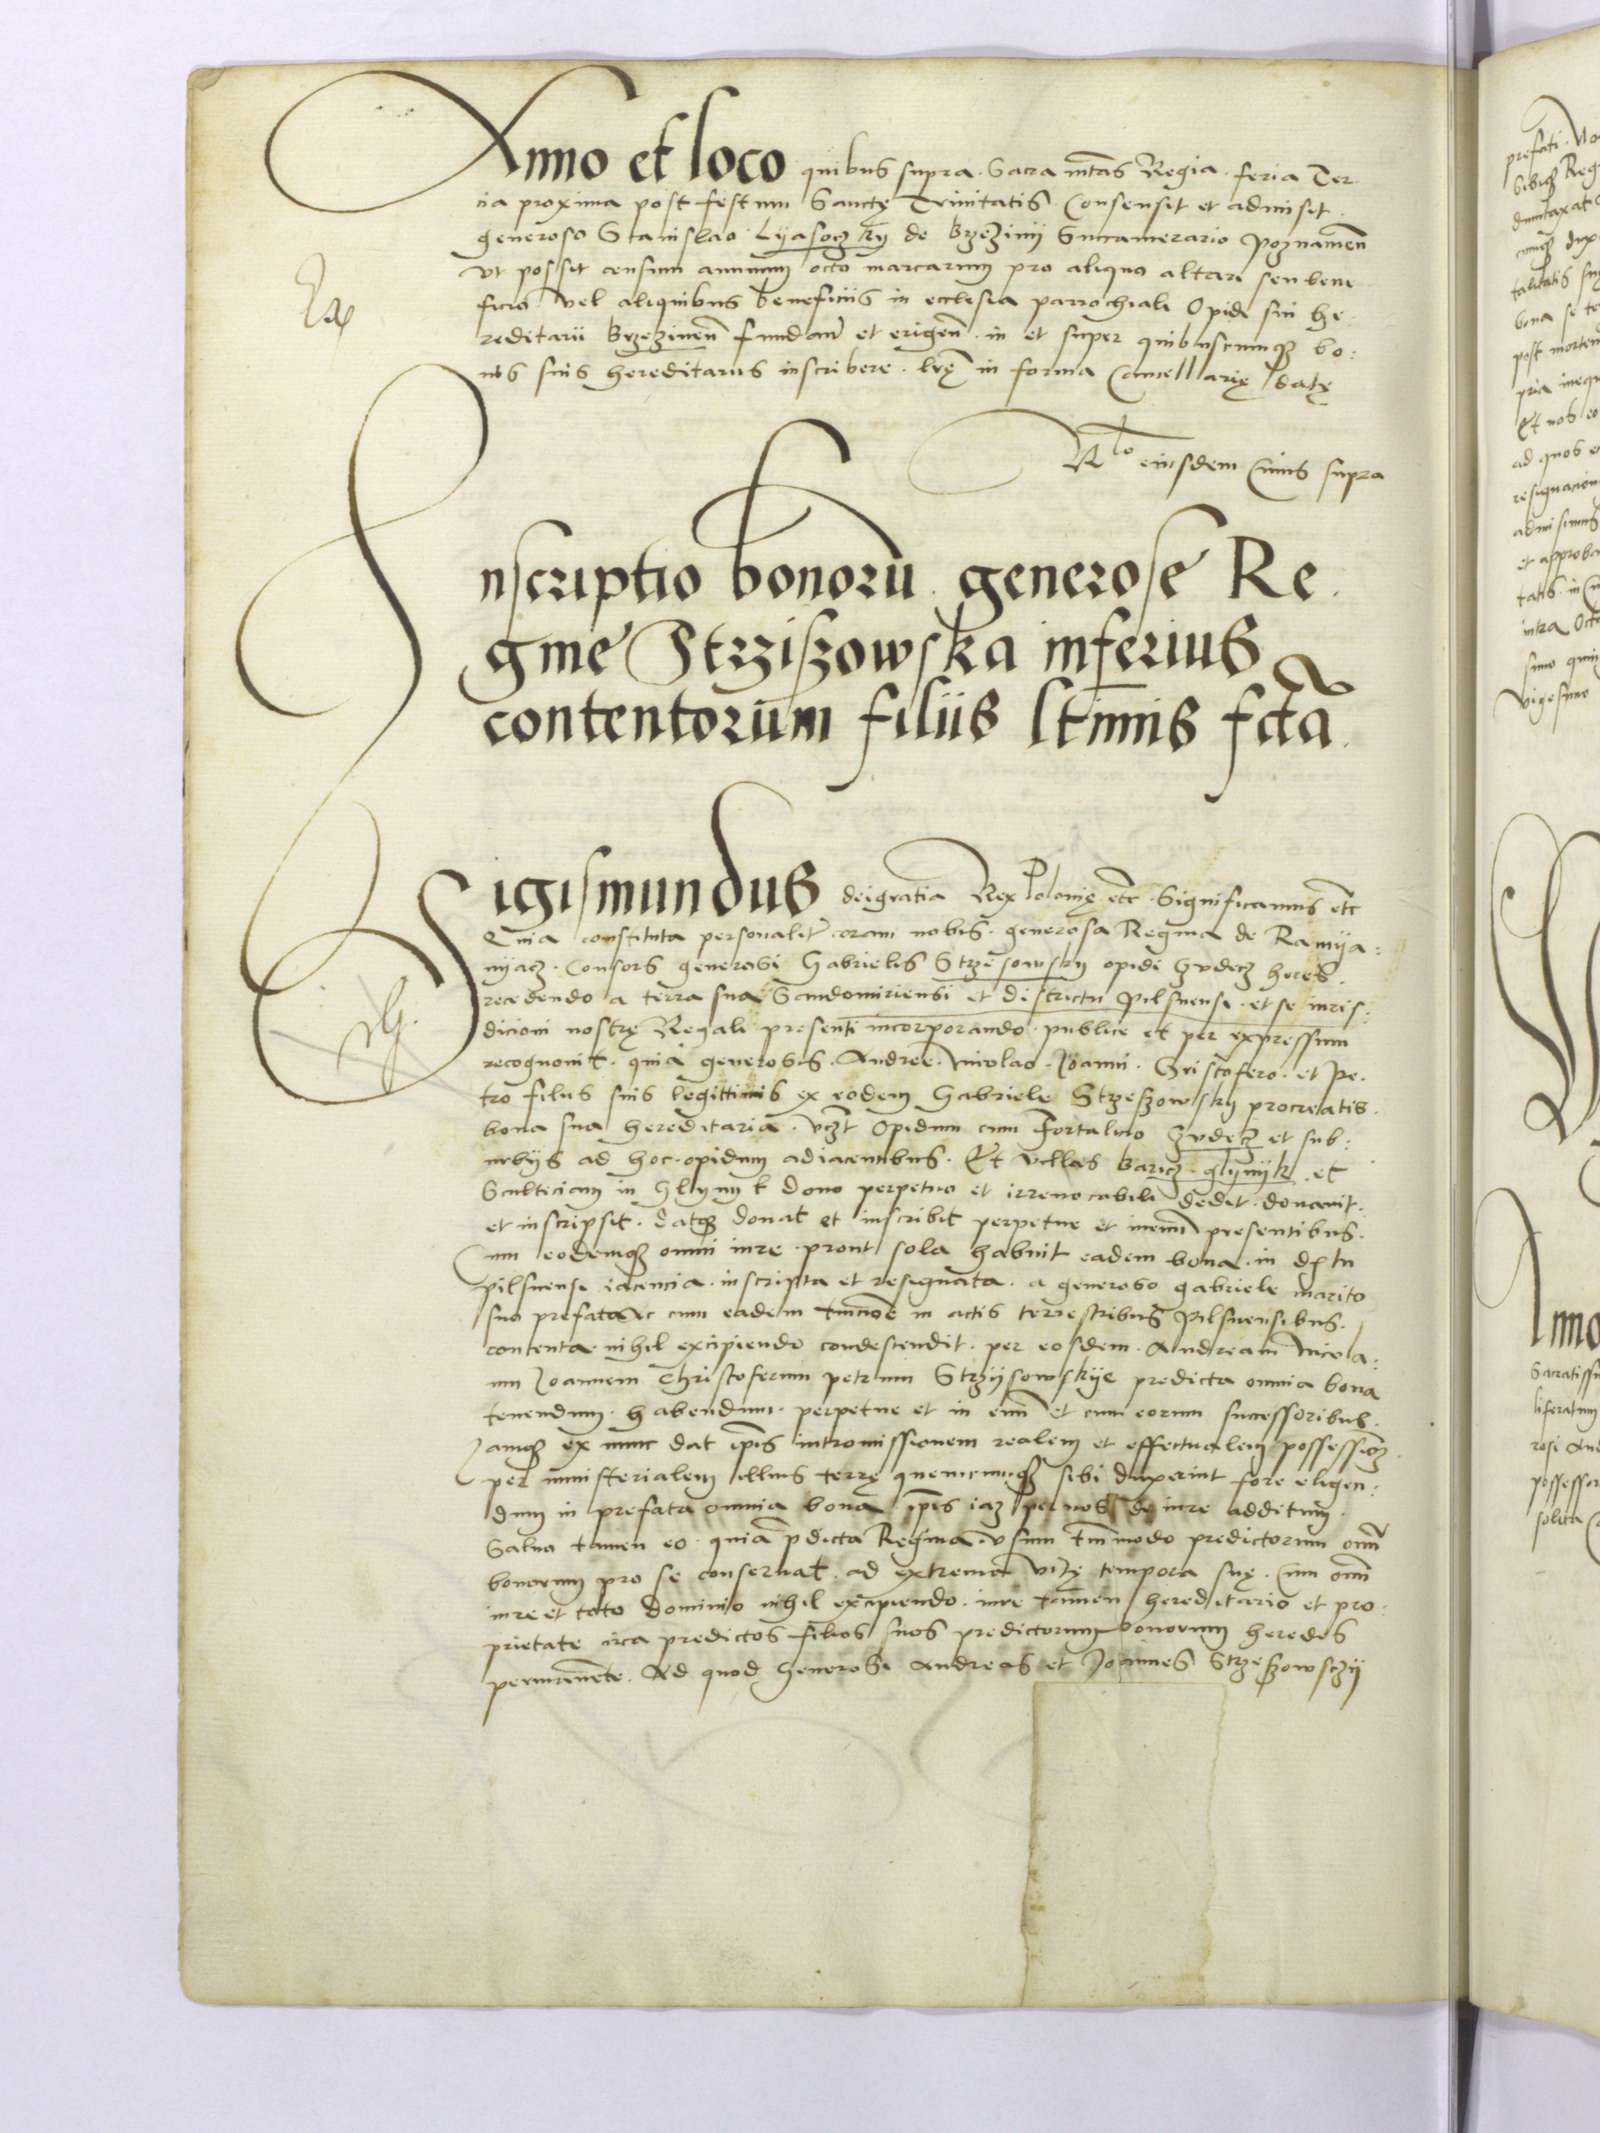 Anno et loco quibus supra. Sacra mtas Regia. feria Ter
cia proxima post festum Sanctę Trinitatis Consensit et admisit.
generoso Stanislao Lyasoczky de Brzezinij Succamerario Poznamen
vt possit censum annuum octo marcarum pro aliquo altari seu bene
Ex
ficio vel aliquibus beneficiis in ecclesia parrochiali Opidi sui he.
reditarii Brzezinen fundare et erigen. in et super quibuscumq3 bo:
nis suis hereditariis inscribere. lrę in forma Cancellarię datę
Rlo eiusdem Cuius supra
Inscriptio bonoru. generose Re.
gine Strziszowska inferius
contentorum filiis ltimis fcta.
Sigismundus deigratia Rex Polonię etc. Significamus etc
Quia constituta personalitr coram nobis. generosa Regina de Ramija:
nijacz. Consors generosi Gabrielis Strzesowsky opidi Gvdecz heres.
recedendo a terra sua Sandomiriensi et districtu pilsnensi. et se iuris:
dicioni nostrę Regali presenti incorporando. publice et per expressum
recognouit. quia generosis. Andree. Nicolao. Joanni. Cristofero. et Pe.
tro filiis suis legittimis ex eodem Gabriele Strzeszowsky procreatis.
bona sua hereditaria. vczt Opidum cum Fortalitio Gvdecz et sub:
urbijs ad hoc. opidum adiacentibus. Et villas Baricz. glijnijk. et
Scultetiam in Glynnik dono perpetuo et irreuocabili dedit. donauit.
et inscripsit. datq3 donat et inscribit perpetue et ineum presentibus.
Cum eodemq3 omni iure. prout sola habuit eadem bona. in dctu
pilsnensi iacencia. inscripta et resignata. a generoso gabriele marito
suo prefato ac cum eadem in actis terrestribus pilsnensibus.
contenta. nihil excipiendo condescendit. per eosdem. Andream Nicola:
um Joannem Christoferum petrum Strzijsowskye predicta omnia bona
tenendum. habendum. perpetue et in eum et cum eorum successoribus.
Jamq3 ex nunc dat ipis intromissionem realem et effectualem possessionem
per ministerialem illius terrę quemcumq3 sibi duxerint fore eligen:
dum in prefata omnia bona ipis iaz per nos de iure additum.
Saluo tamen eo. quia pdicta Regina. vsum tmmodo predictorum omn
bonorum pro se conseruat. ad extrema vitę tempora suę. Cum omni
iure et toto dominio nihil excipiendo. iure tamen hereditario et pro.
prietate circa predictos filios suos predictorum bonorum heredes
permanente. Ad quod Generosi Andreas et Joannes Strzeszowsczij